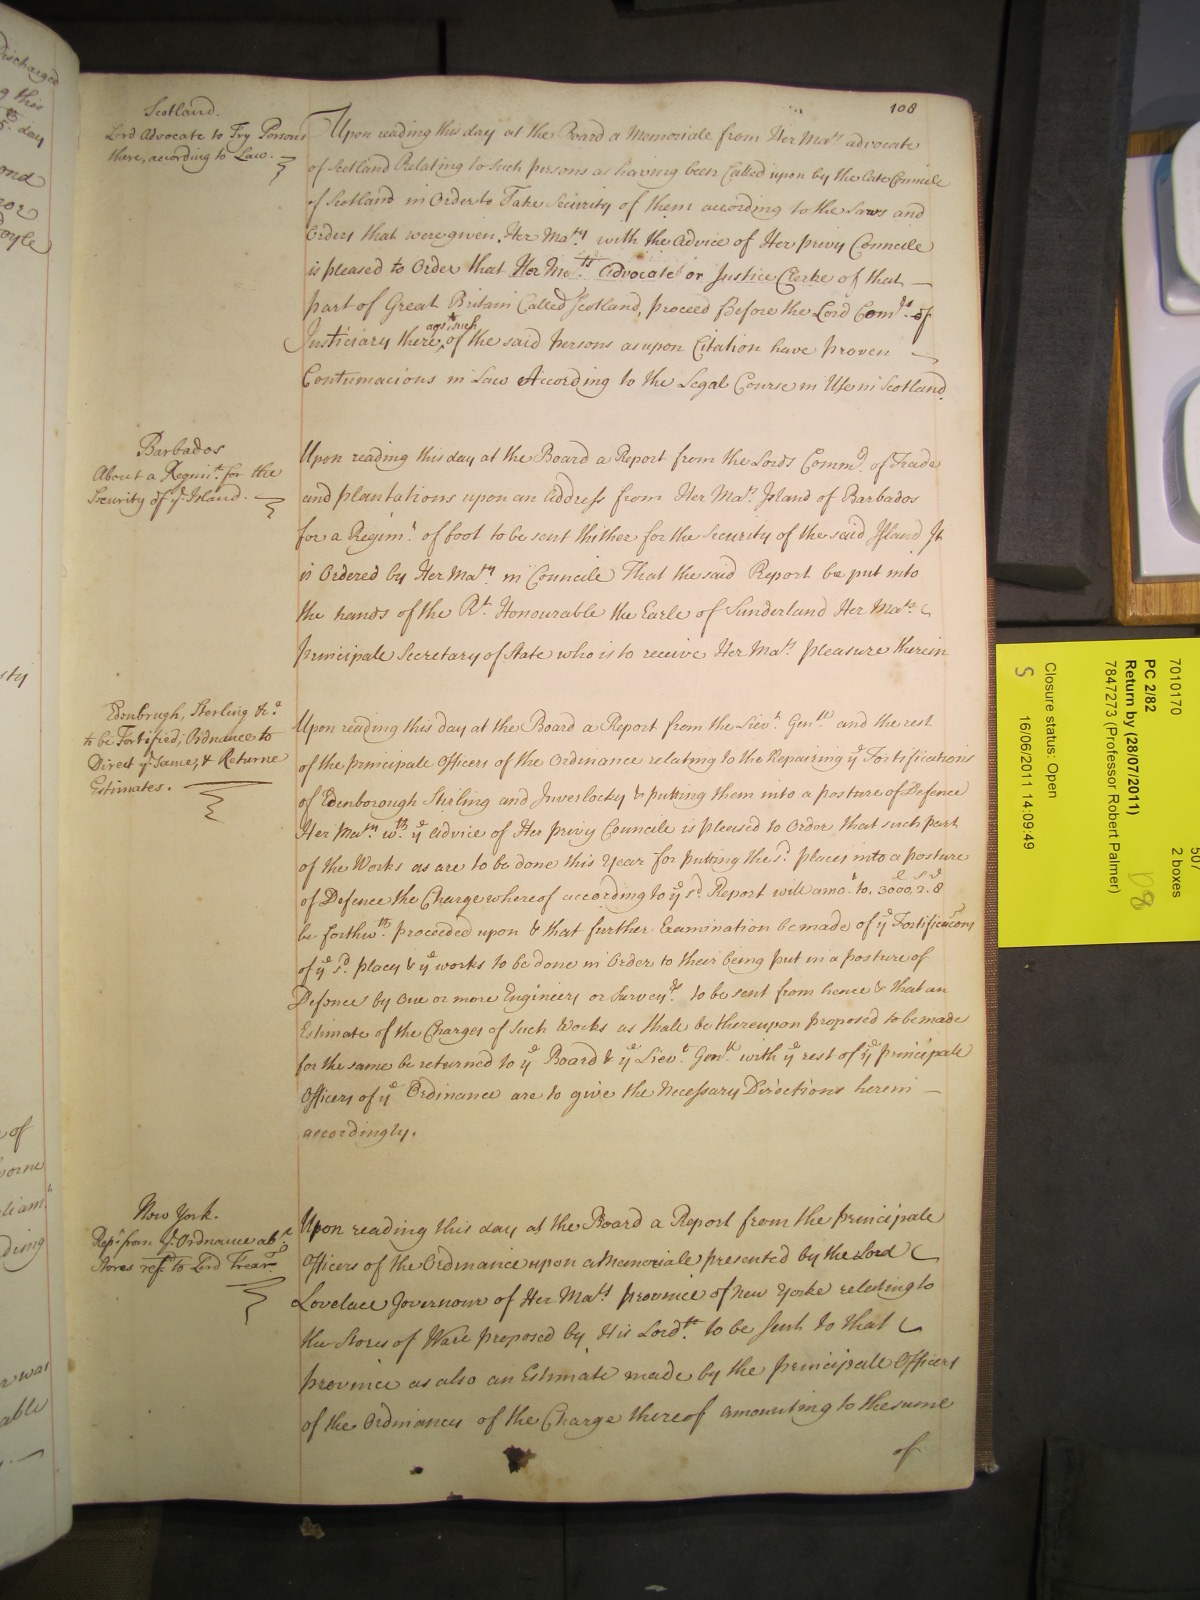 108
Scotland.
Lord Advocate to Try Persons
there, according to Law.
Upon reading this day at the Board a Memoriale from Her Ma.ts advocate
of Scotland Relating to such persons as having been Called upon by the late Councile
of Scotland in Order to Take Security of them according to the Laws and
Orders that were given. Her Ma.ty with the Advice of Her privy Councile
is pleased to Order that Her Ma.ts Advocate or Justice Clerke of that
part of Great Britain Called Scotland, proceed Before the Lord Com.rs of
agt. such
Justiciary there, of the said persons as upon Citation have proven
Contumacious in Law According to the Legal Course in Use in Scotland.
Barbados
About a Regim.t for the
Security of ye Island.
Upon reading this day at the Board a Report from the Lords Comm.rs of Trade
and plantations upon an Address from Her Ma.ts Island of Barbados
for a Regim.t of foot to be sent thither for the Security of the said Island It
is Ordered by Her Ma.ty in Councile That the said Report be put into
the hands of the R.t Honourable the Earle of Sunderland Her Ma.ts
Principale Secretary of State who is to receive Her Ma.ts pleasure therein
Edenbrugh, Sterling &c.a
to be Fortified; Ordnance to
Direct ye Same, & Returne
Estimates.
Upon reading this day at the Board a Report from the Liev.t Gen.ll and the rest
of the principale Officers of the Ordinance relating to the Repairing ye Fortifications
of Edenborough Stirling and Inverlochy & putting them into a posture of Defence
Her Ma.ty w.th ye advice of Her privy Councile is pleased to Order that such part
of the Works as are to be done this Year for putting the s.d places into a posture
of Defence the Charge whereof according to ye s.d Report will amo.t to. 3000. 2. 8
be forthw.th proceeded upon & that further Examination be made of ye Fortificacons
of ye s.d places & ye works to be done in Order to their being put in a posture of
Defence by one or more Engineers or Survey.rs to be sent from hence & that an
Estimate of the Charges of Such Works as shale be thereupon proposed to be made
for the same be returned to ye Board & ye Liev.t Gen.ll with ye rest of ye principale
Officers of ye Ordinance are to give the Necessary Directions herein
accordingly.
New York.
Rep.t from ye Ordnance ab.t
Stores ref.d to Lord Trear.r
Upon reading this day at the Board a Report from the principale
Officers of the Ordinance upon a Memoriale presented by the Lord
Lovelace Governour of Her Ma.ts province of New Yorke relating to
the Stores of Warr proposed by His Lord.p to be sent to that
province as also an Estimate made by the principale Officers
of the Ordinance of the Charge thereof amounting to the sume
of
507
2 boxes
7010170
PC 2/82
Return by (28/07/2011)
7847273 (Professor Robert Palmer)
D8
Closure status: Open
16/06/2011 14:09:49
S